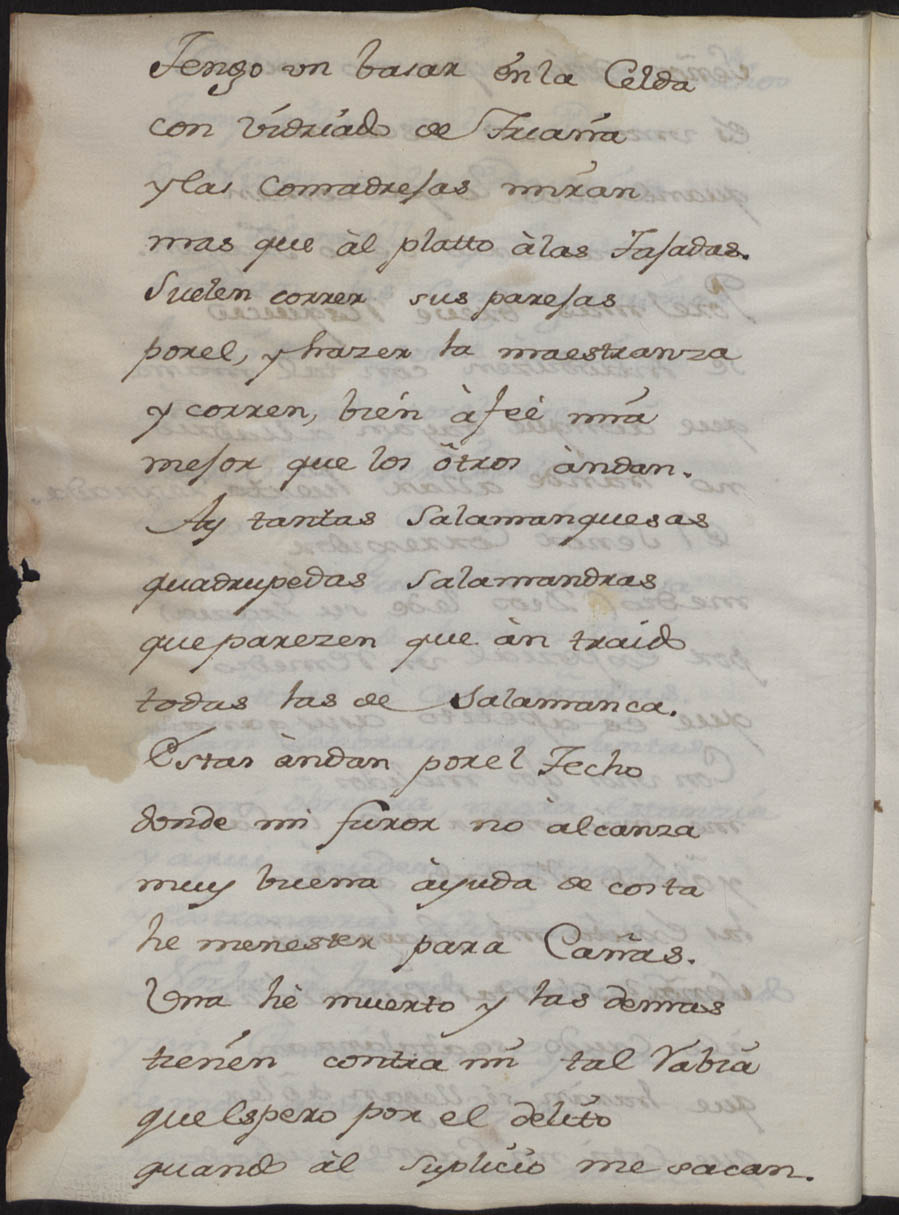 Tengo un basar én la Celda
con vidriado de Triana
y las Comadresas míran
mas que àl platto àlas Tasadas.
Suelen correr sus paresas
porel, y hazer la maestranza
y corren, bién à feè mía
mesor que los õtros àndan.
Ay tantas Salamanquesas
quadrupedas Salamandras
que parezen que àn traido
todas las de Salamanca.
Estas àndan por el Techo
donde mi furor no àlcanza
muy buena àyuda de costa
he menester para Cañas.
Una hè muerto y las demas
tienén contra mí tal Rabia
que Espero por el delito
quando àl suplicio me sacan.